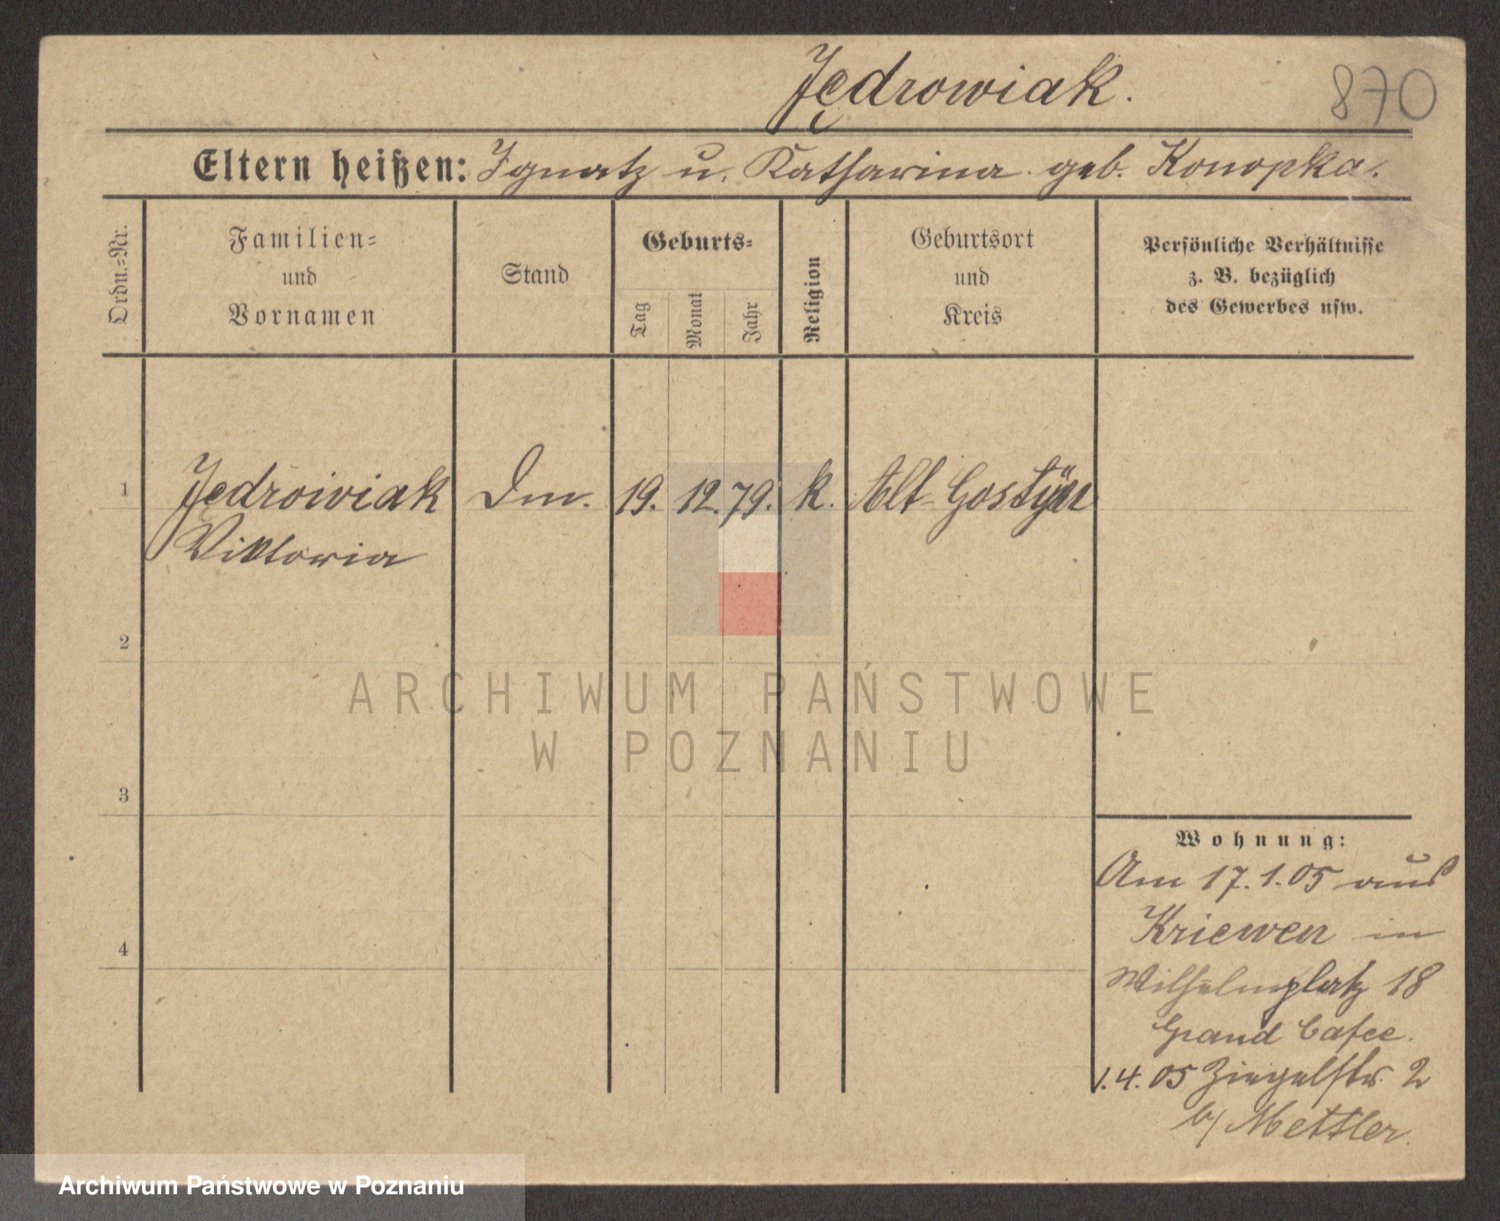 Jędrowiak.
870
Eltern heißen: Ignatz u. Katharina geb. Konopka.
Ordn.=Nr.
Familien=
und
Vornamen
Stand
Geburts=
Tag
Monat
Jahr
Religion
Geburtsort
und
Kreis
Persönliche Verhältnisse
z. B. bezüglich
des Gewerbes usw.
1
Jedrowiak
Viktoria
Dm.
19. 12. 79.
k.
Alt Gostÿn
2
3
4
Wohnung:
Am 17.1.05 aus
Kriewen in
Wilhelmplatz 18
Grand Cafee.
1.4.05 Ziegelstr. 2
b/ Mettler.
ARCHIWUM PAŃSTWOWE
W POZNANIU
Archiwum Państwowe w Poznaniu